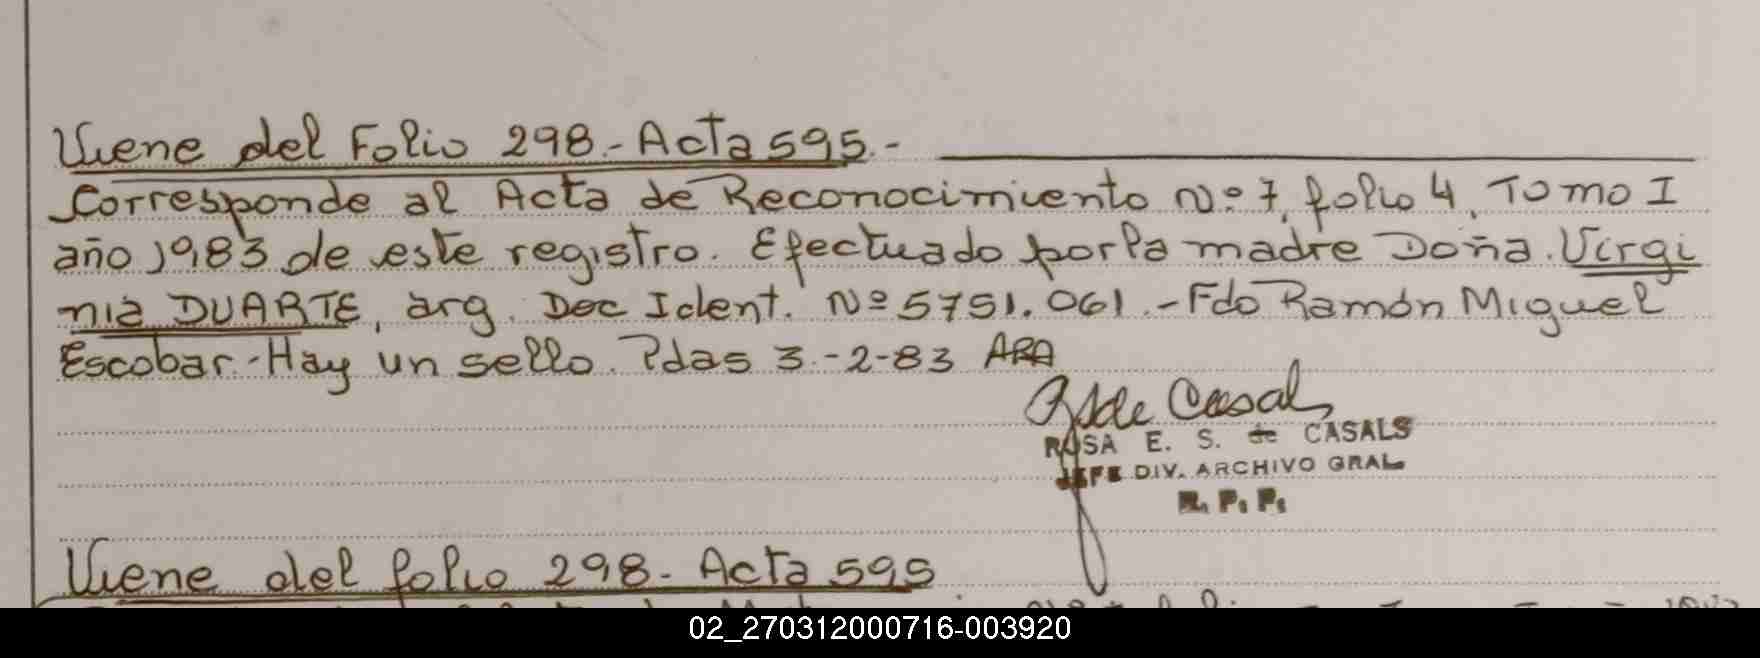 Viene del Folio 298.- Acta 595.-
Corresponde al Acta de Reconocimiento Nº 7, folio 4, Tomo I
año 1983 de este registro. Efectuado por la madre Doña. Virgi
nia DUARTE, arg. Doc Ident. Nº 5751.061.- Fdo Ramón Miguel
Escobar.- Hay un sello. Pdas 3-2-83 ARA
de Casals
ROSA E. S. de CASALS
JEFE DIV. ARCHIVO GRAL
R. P. P.
Viene del folio 298- Acta 595
02_270312000716-003920